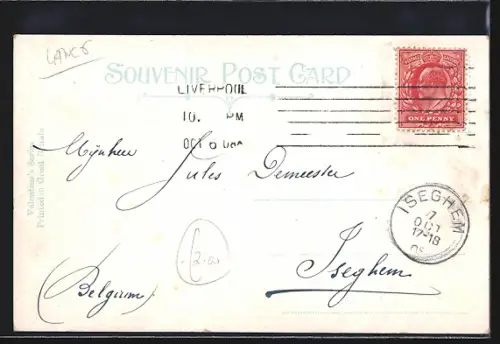 LANCS
SOUVENIR POST CARD
LIVERPOOL
10. PM
OCT 6
ONE PENNY
Mijnheer Jules Demeester
ISEGHEM
7
OCT
17-18
2.50
Iseghem
(Belgium)
Valentine's Series
Printed in Great Britain